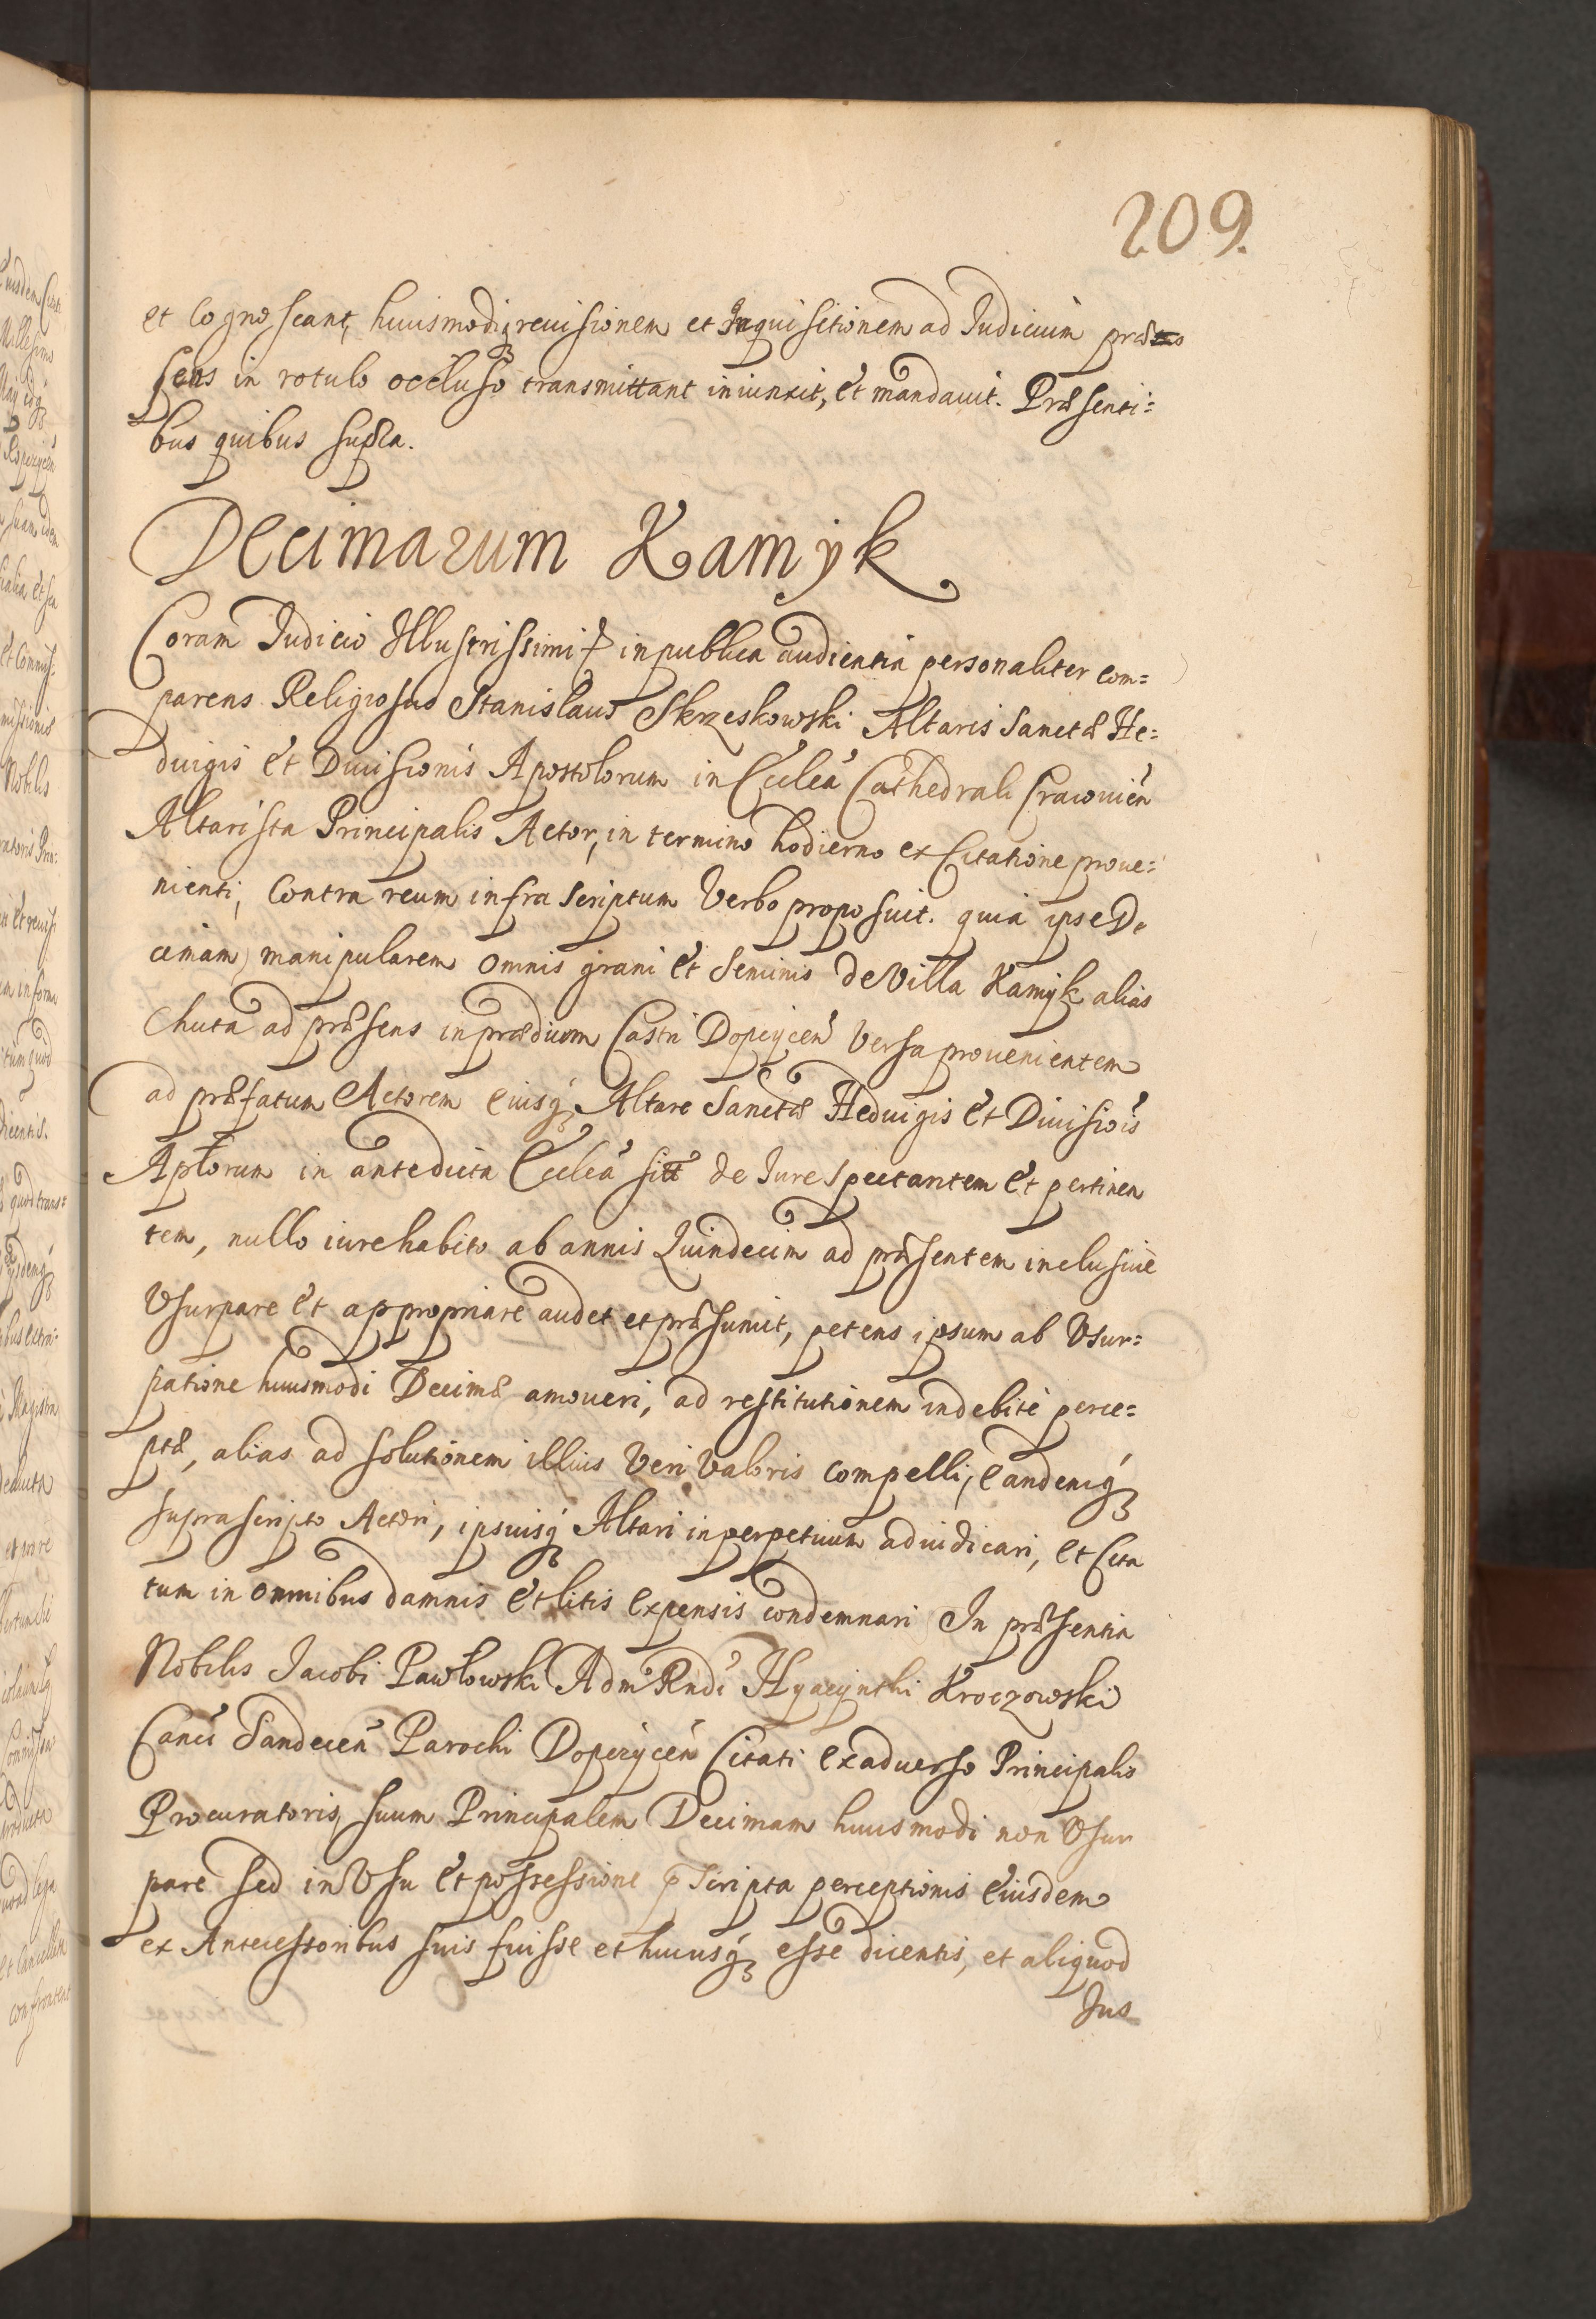 209.
et Cognoscant, huiusmodiq; reuisionem et Inquisitionem ad Iudicium præ
sens in rotulo occluso transmittant iniunxit, et mandauit. Præsenti=
bus quibus supra.
Decimarum Kamyk
Coram Iudicio Illustrissimi & in publica audientia personaliter com=
parens Religiosus Stanislaus Skrzeskowski Altaris Sanctæ He=
duigis et Diuisionis Apostolorum in Ecclea Cathedrali Cracouien
Altarista Principalis Actor, in termino hodierno ex Citatione proue=
nienti, Contra reum infra scriptum Verbo proposuit. quia ipse De
cimam manipularem omnis grani et Seminis de Villa Kamyk alias
Chuta ad præsens in prædium Castri Dopcycen versa prouenientem
ad præfatum Actorem eiusq; Altare Sanctæ Heduigis et Diuisiois
Apłorum in antedicta Ecclea sitt de Iure spectantem et pertinen
tem, nullo iure habito ab annis Quindecim ad præsentem inclusiue
Vsurpare et appropriare audet et præsumit, petens ipsum ab Vsur=
patione huiusmodi Decimæ amoueri, ad restitutionem indebite perce=
ptæ, alias ad solutionem illius Veri Valoris compelli, eandemq;
suprascripto Actori, ipsiusq; Altari in perpetuum adiudicari, et Cita
tum in omnibus damnis et litis expensis condemnari In præsentia
Nobilis Iacobi Pawłowski Adm Rndi Hyacynthi Kroczowski
Canci Sandecen Parochi Dopczycen Citati ex aduerso Principalis
Procuratoris, suum Principalem Decimam huiusmodi non Vsur
pare sed in Vsu et possessione p scripta perceptionis eiusdem
ex Antecessoribus suis fuisse et hucusq; esse dicentis, et aliquod
Ius